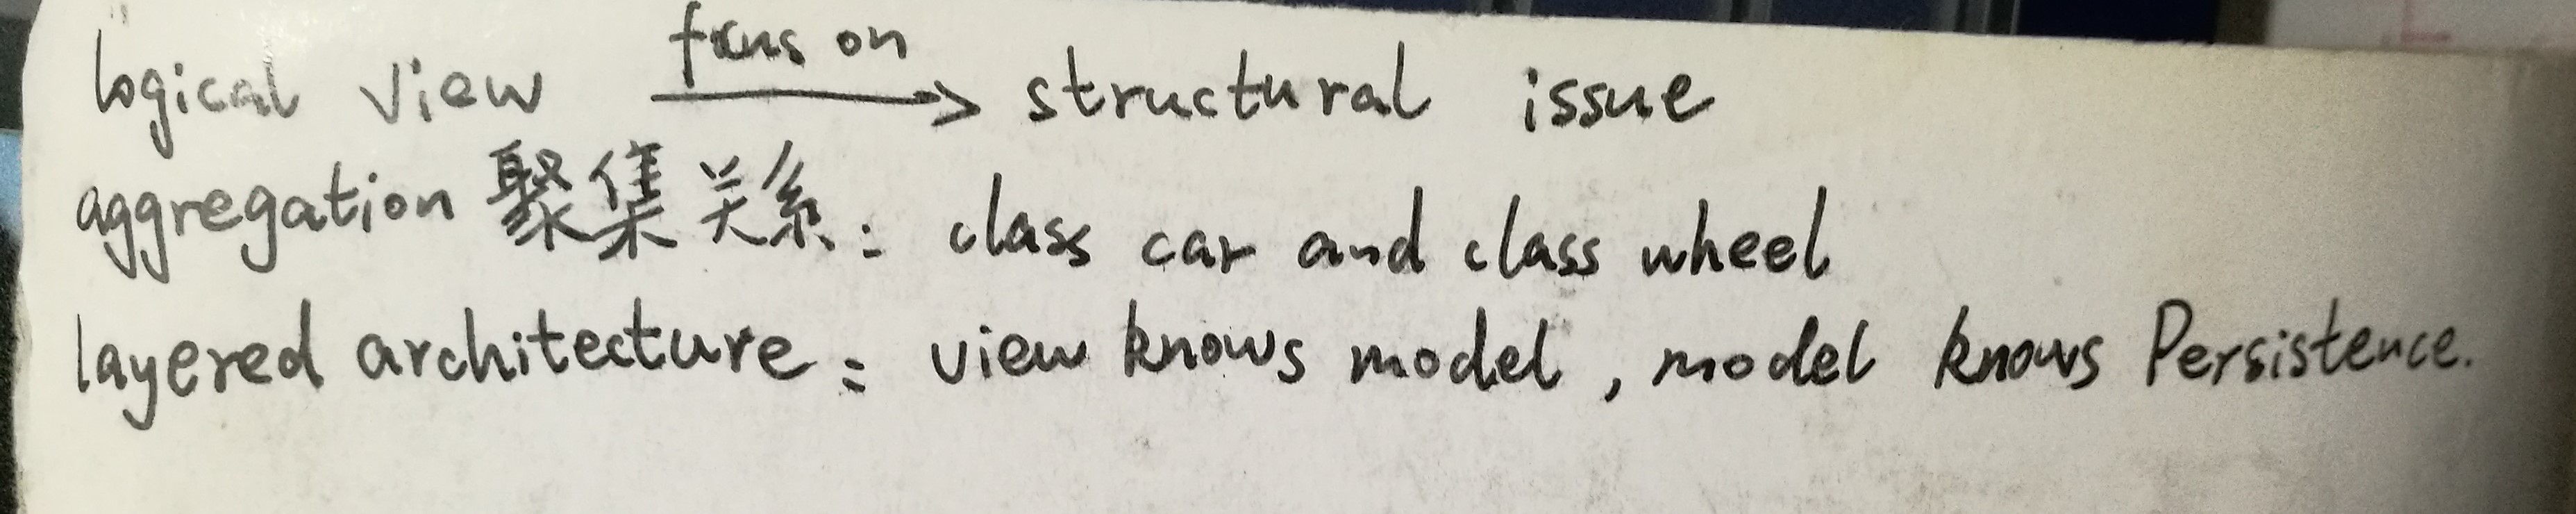 logical view focus on → structural issue
aggregation 聚集关系: class car and class wheel
layered architecture: view knows model, model knows Persistence.